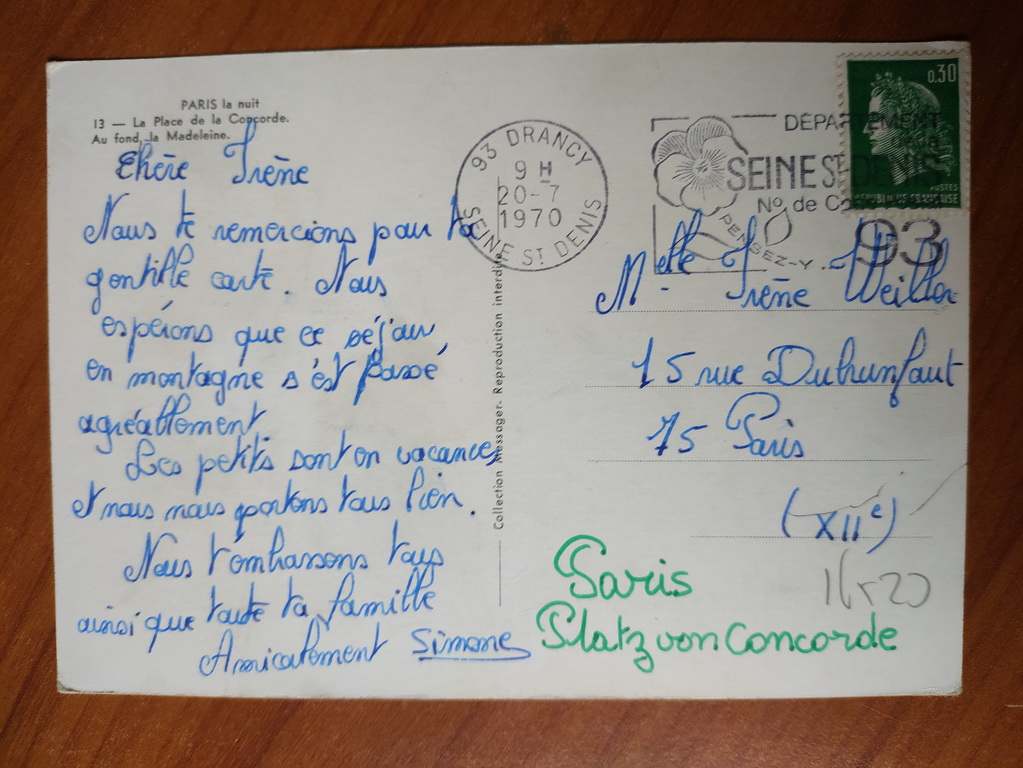 PARIS la nuit
13 — La Place de la Concorde.
Au fond, la Madeleine.
Chère Irène
Nous te remercions pour ta
gentille carte. Nous
espérons que ce séjour
en montagne s'est passé
agréablement.
Les petits sont en vacances
et nous nous portons tous bien.
Nous t'embrassons tous
ainsi que toute ta famille
Amicalement Simone
Collection Messager. Reproduction interdite
93 DRANCY
9 H
20-7
1970
SEINE ST DENIS
DÉPARTEMENT
SEINE ST DENIS
No. de
93
PENSEZ-Y
0,30
POSTES
REPUBLIQUE FRANÇAISE
Melle Irène Weiller
15 rue
75 Paris
(XIIe)
Paris
Platz von Concorde